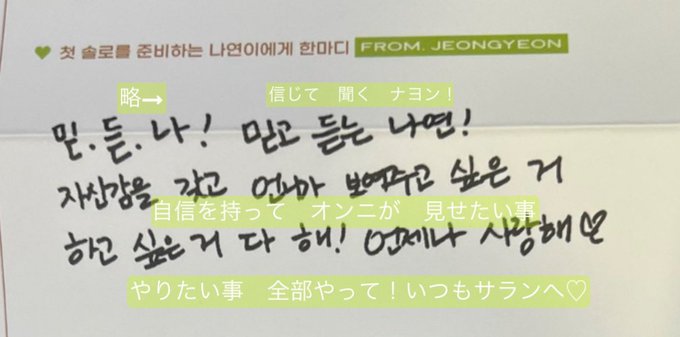 ♥ 첫 솔로를 준비하는 나연이에게 한마디 FROM. JEONGYEON
略→ 信じて 聞く ナヨン!
믿.듣.나! 믿고 듣는 나연!
자신감을 갖고 언니가 보여주고 싶은 거
自信を持って オンニが 見せたい事
하고 싶은 거 다 해! 언제나 사랑해♡
やりたい事 全部やって!いつもサランヘ♡